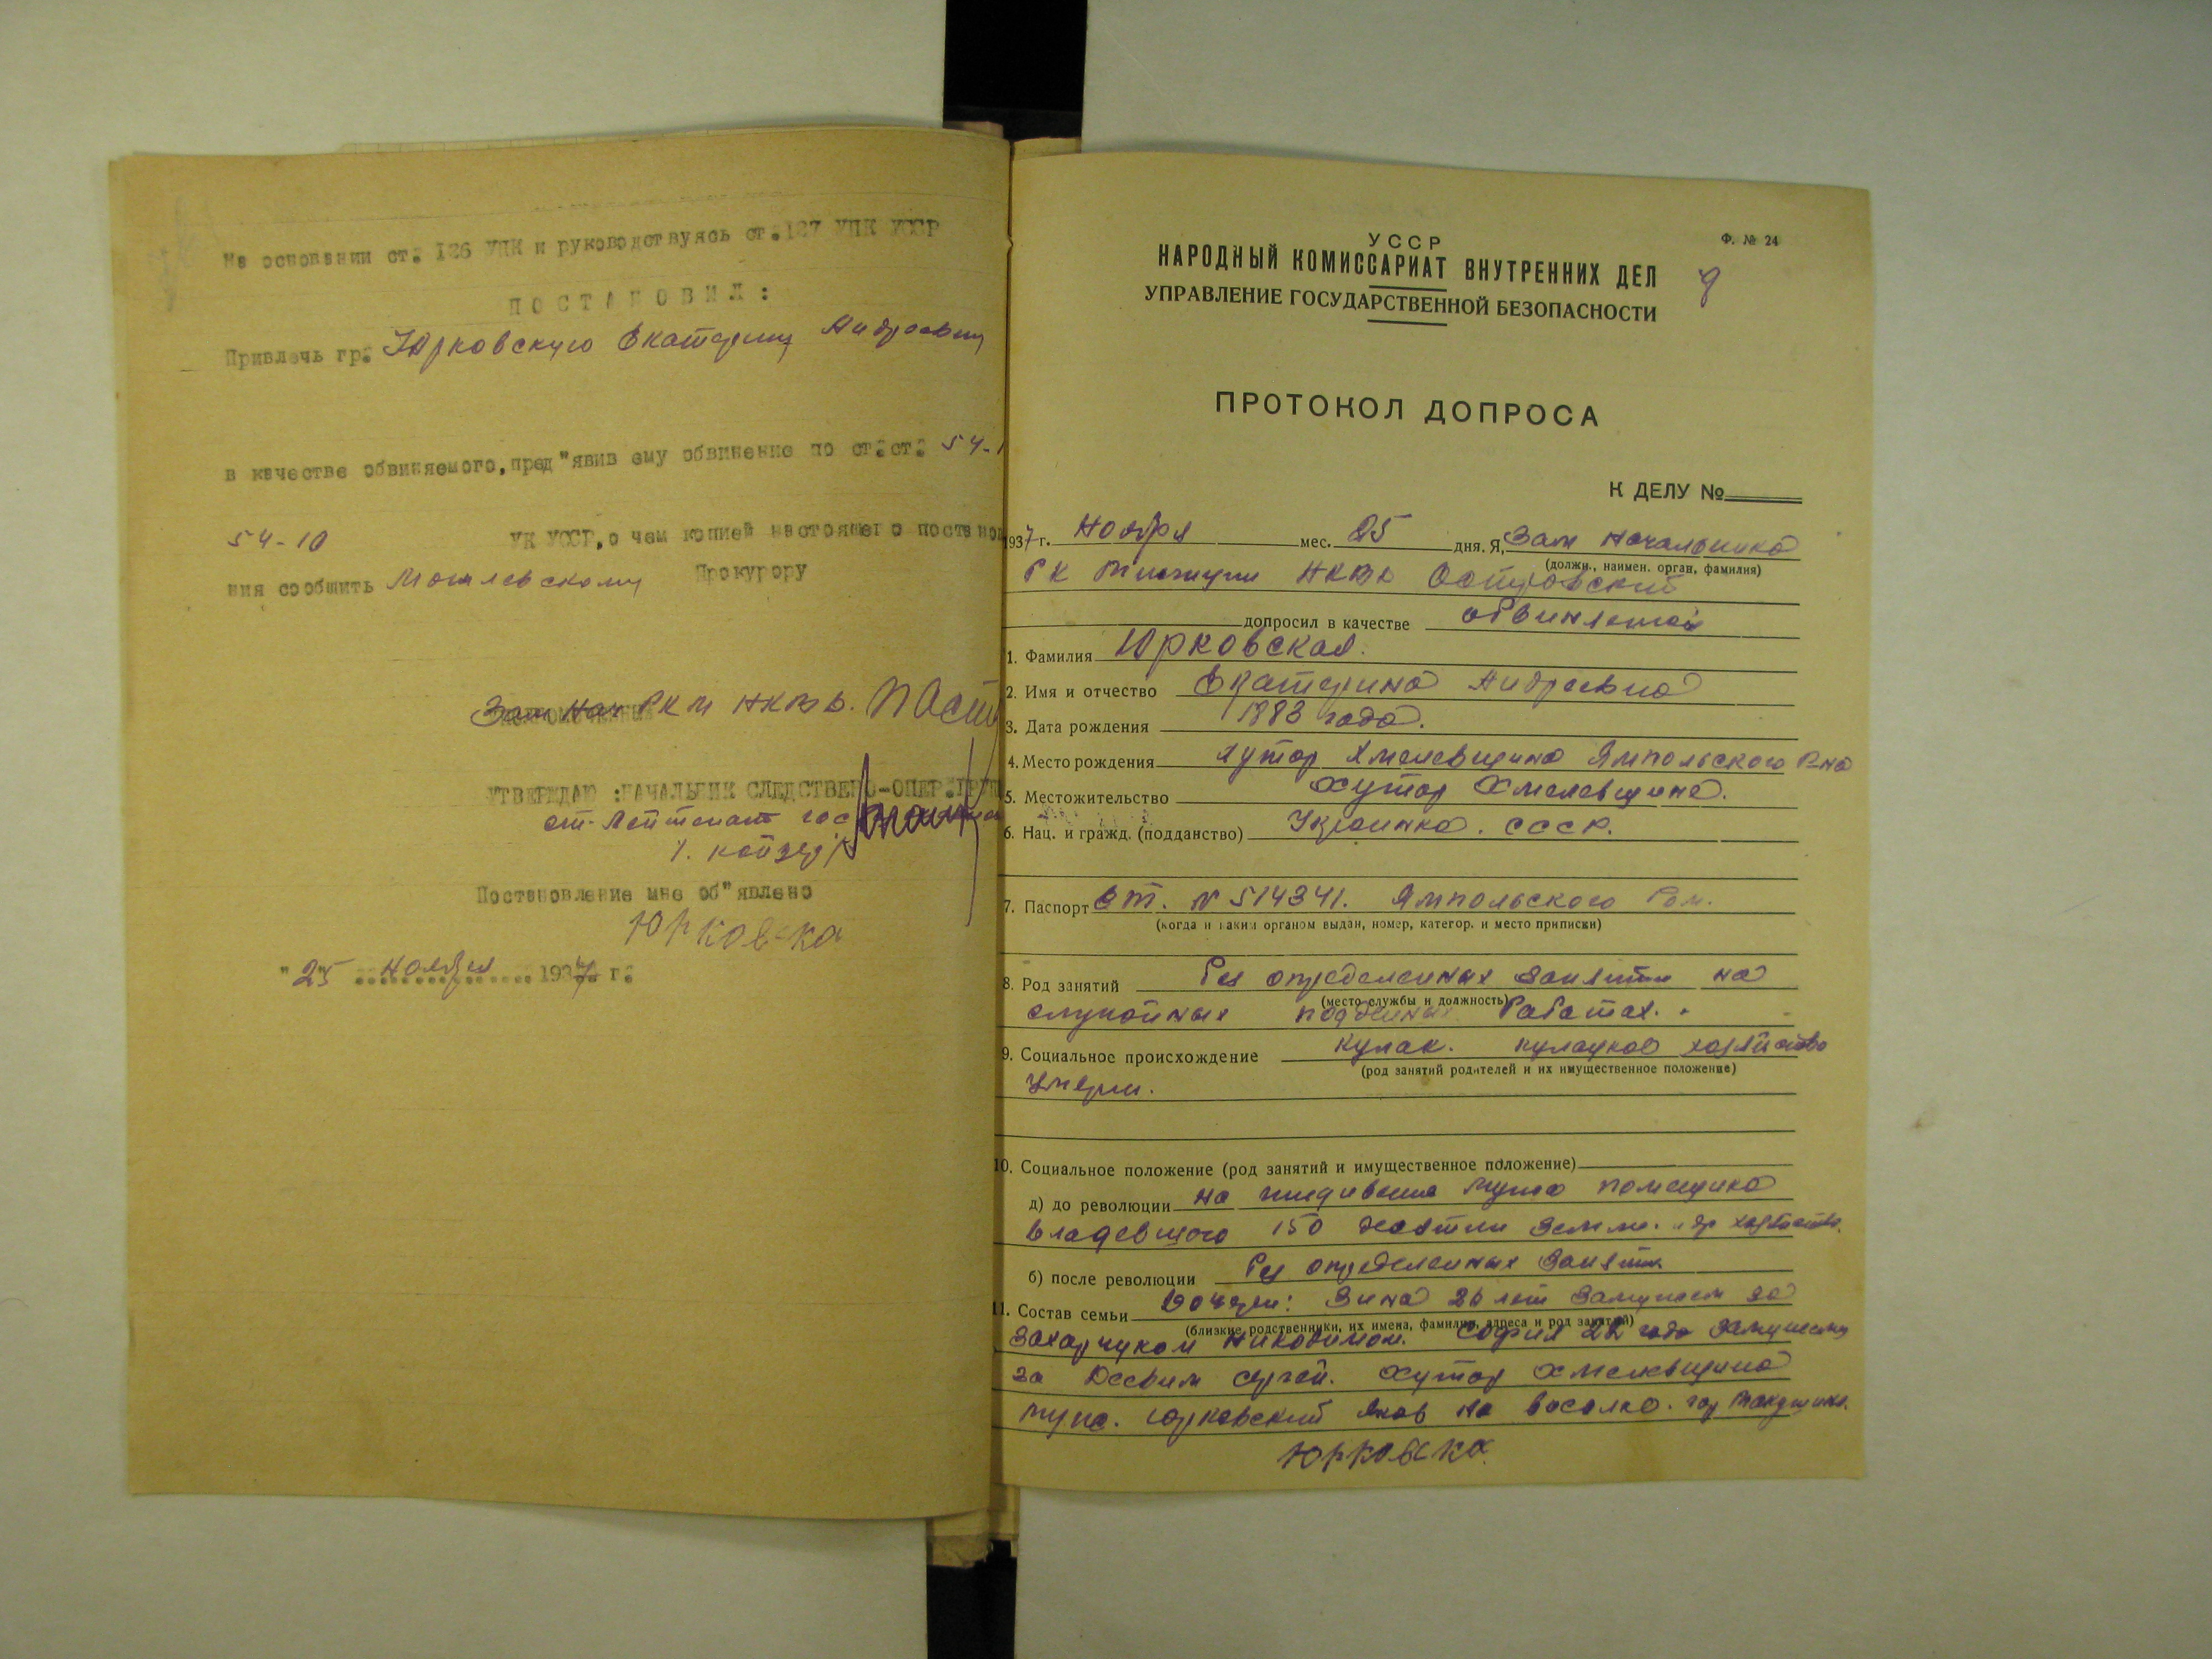 На основании ст. 126 УПК и руководствуясь ст.127 УПК УССР
ПОСТАНОВИЛ:
Привлечь гр. Юрковскую Екатерину Андреевну
в качестве обвиняемого, пред"явив ему обвинение по ст.ст. 54-1
54-10 УК УССР, о чем копией настоящего постанов
ния сообщить Могилевскому Прокурору
Зам Нач РКМ НКВД. ПОст
УТВЕРЖДАЮ :НАЧАЛЬНИК СЛЕДСТВЕНО-ОПЕР.ГРУП
ст. Лейтенант гос
Постановление мне об"явлено
Юрковска
"25" ноября 1937 г.
УССР
Ф. № 24
НАРОДНЫЙ КОМИССАРИАТ ВНУТРЕННИХ ДЕЛ
9
УПРАВЛЕНИЕ ГОСУДАРСТВЕННОЙ БЕЗОПАСНОСТИ
ПРОТОКОЛ ДОПРОСА
К ДЕЛУ №
1937 г. Ноября мес. 25 дня. Я, Зам Начальника
(должн., наимен. орган, фамилия)
РК Милиции НКВД Островский
допросил в качестве обвиняемой
1. Фамилия Юрковская.
2. Имя и отчество Екатерина Андреевна
3. Дата рождения 1883 года.
4. Место рождения хутор Хмелевщина Ямпольского Р-на
5. Местожительство Хутор Хмелевщина.
6. Нац. и гражд. (подданство) Украинка. СССР.
7. Паспорт ЭТ. № 514341. Ямпольского
(когда и каким органом выдан, номер, категор. и место приписки)
8. Род занятий Без определенных занятий на
(место службы и должность)
случайных подённых Работах.
9. Социальное происхождение кулак. кулацкое хозяйство
(род занятий родителей и их имущественное положение)
умерли.
10. Социальное положение (род занятий и имущественное положение)
д) до революции на иждивении мужа помещика
владевшого 150 десятин земли. и др хозяйство.
б) после революции Без определенных занятий
11. Состав семьи дочери: Зина 26 лет замужем за
(близкие родственники, их имена, фамилии, адреса и род занятий)
Захарчуком Никодимом. София 22 года замужем
за Сергей. Хутор Хмелевщина
муж. Юрковский Яков на
Юрковска